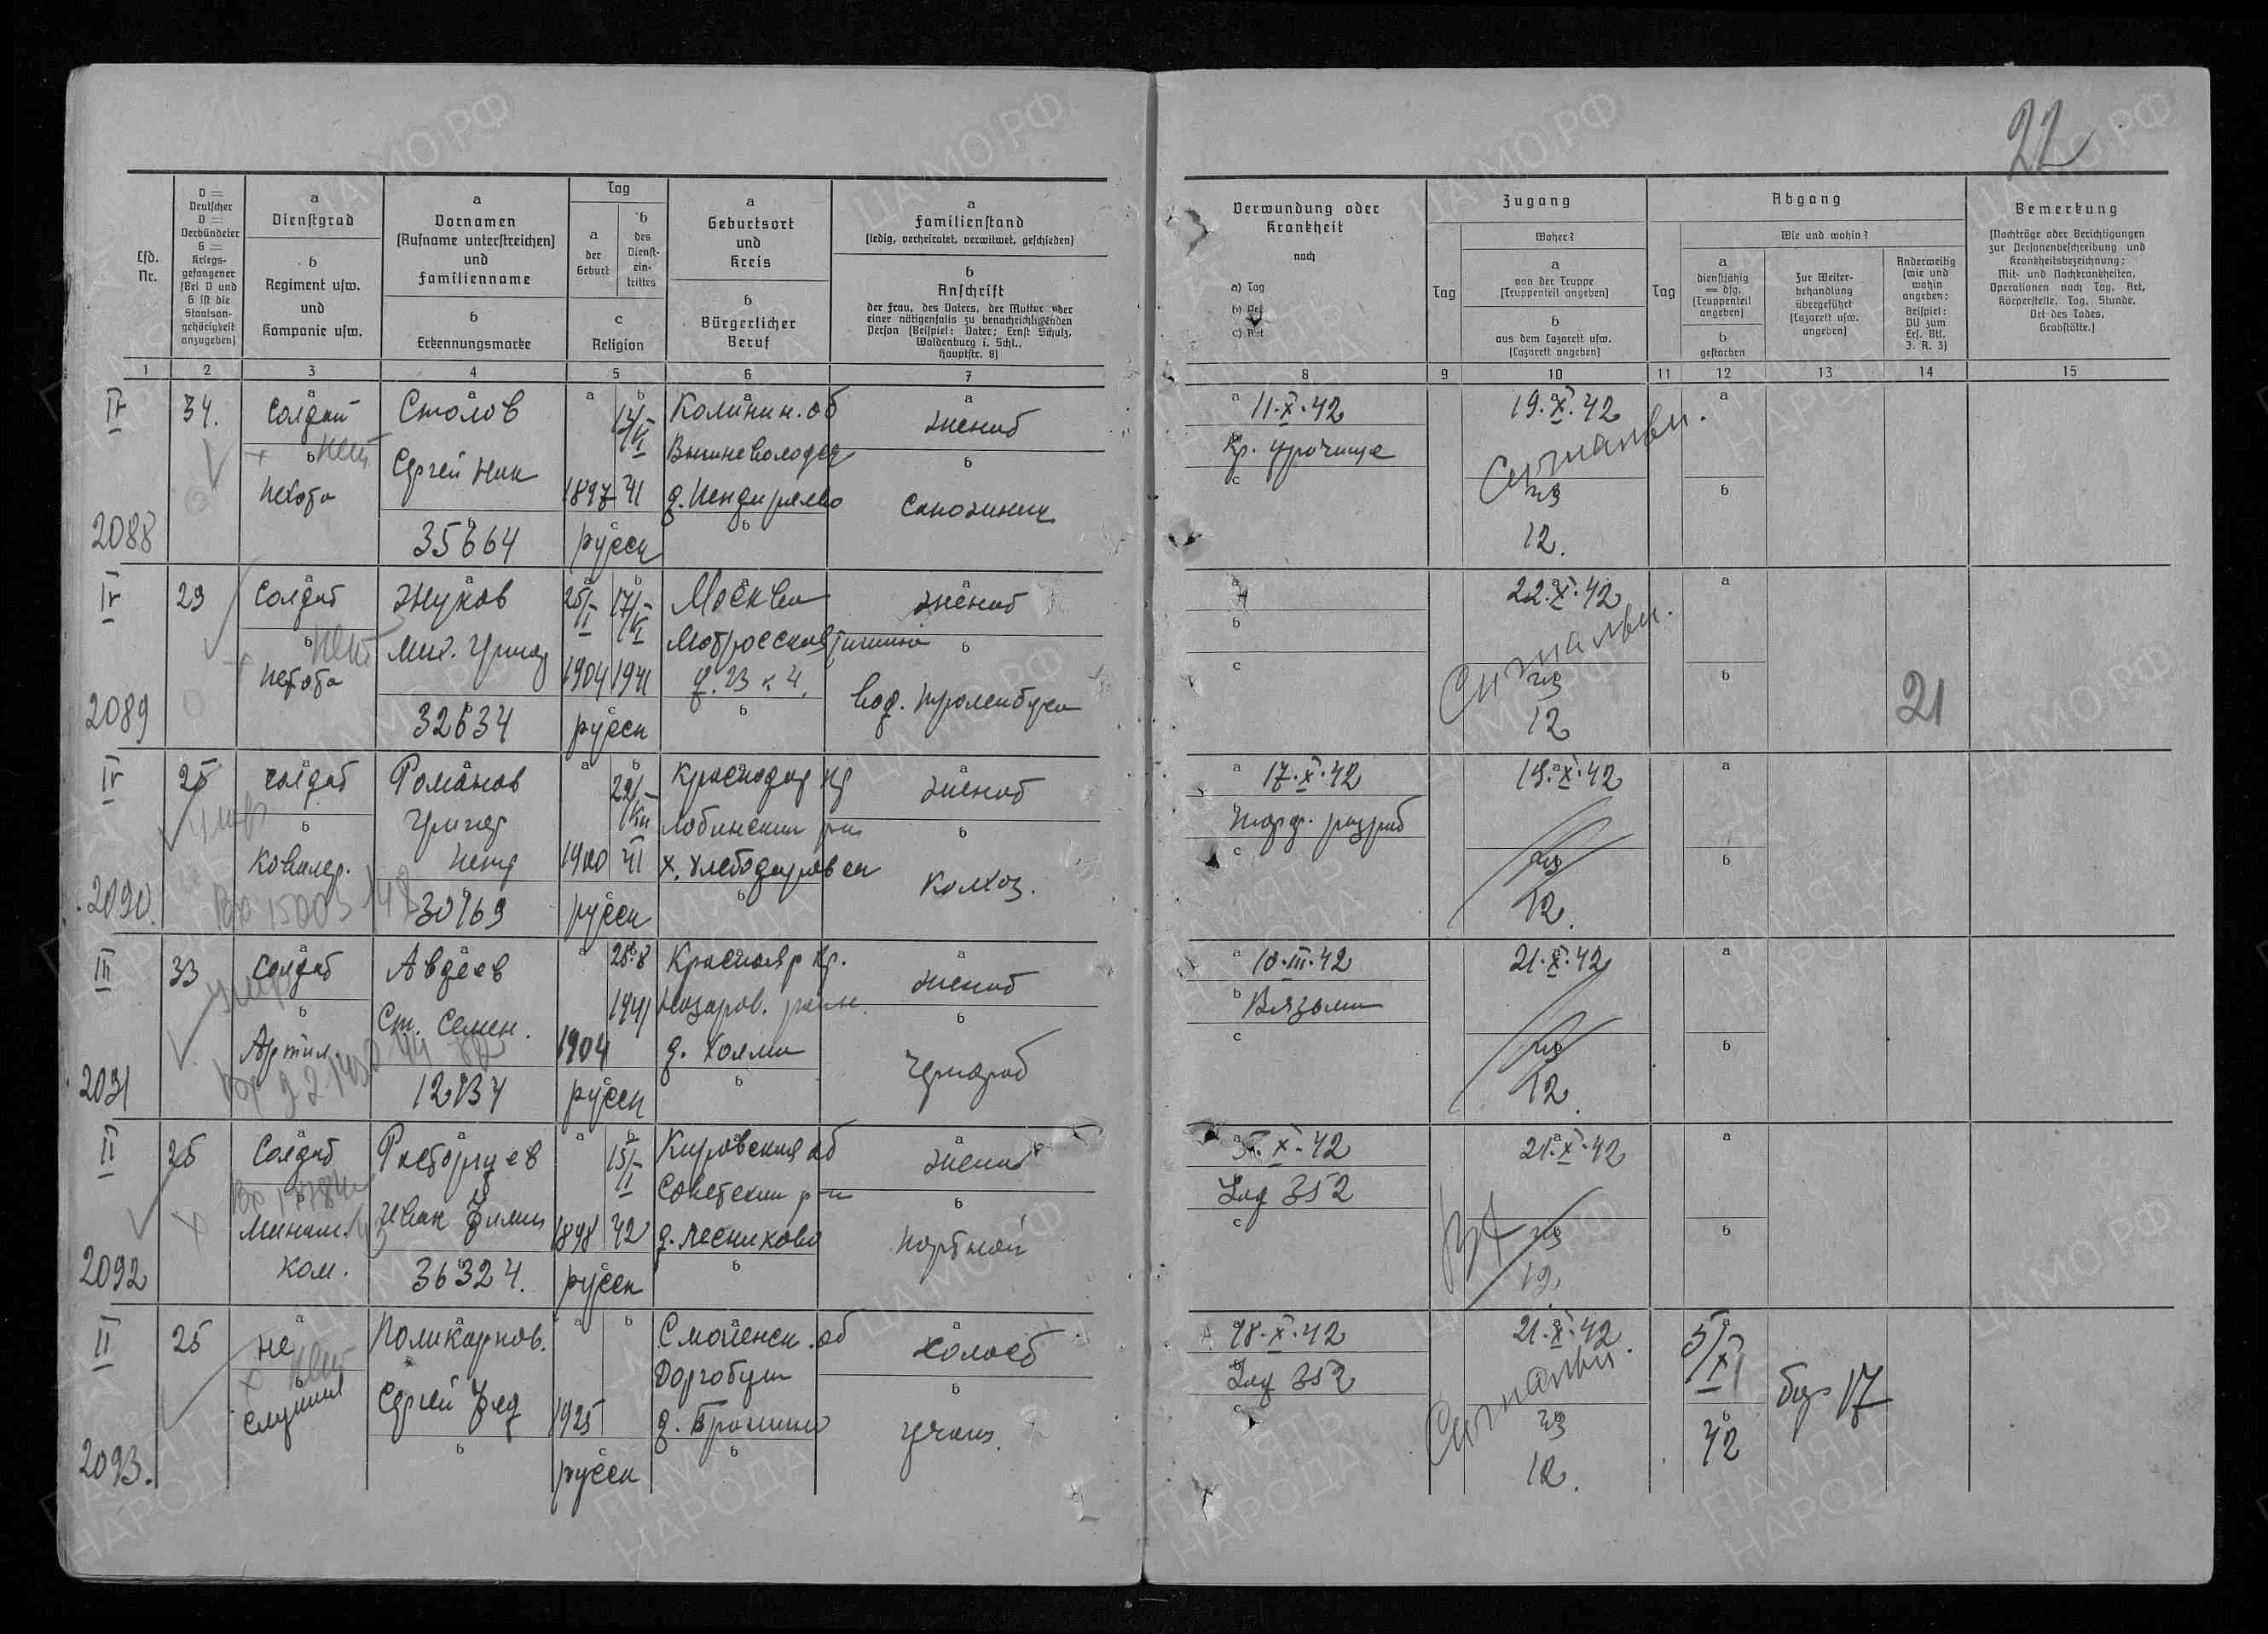 22
Lfd.
Nr.
D =
Deutscher
V =
Verbündeter
G =
Kriegs-
gefangener
(Bei V und
G ist die
Staatsan-
gehörigkeit
anzugeben)
a
Dienstgrad
b
Regiment usw.
und
Kompanie usw.
a
Vornamen
(Rufname unterstreichen)
und
Familienname
b
Erkennungsmarke
Tag
a
der
Geburt
b
des
Dienst-
ein-
trittes
c
Religion
a
Geburtsort
und
Kreis
b
Bürgerlicher
Beruf
a
Familienstand
(ledig, verheiratet, verwitwet, geschieden)
b
Anschrift
der Frau, des Vaters, der Mutter oder
einer nötigenfalls zu benachrichtigenden
Person (Beispiel: Vater: Ernst Schulz,
Waldenburg i. Schl.,
Hauptstr. 8)
Verwundung oder
Krankheit
nach
a) Tag
b) Ort
c) Art
Zugang
Tag
Woher?
a
von der Truppe
(Truppenteil angeben)
b
aus dem Lazarett usw.
(Lazarett angeben)
Abgang
Tag
Wie und wohin?
a
dienstfähig
= dfg.
(Truppenteil
angeben)
b
gestorben
Zur Weiter-
behandlung
übergeführt
(Lazarett usw.
angeben)
Anderweitig
(wie und
wohin
angeben;
Beispiel:
DU zum
Ers. Btl.
J. R. 3)
Bemerkung
(Nachträge oder Berichtigungen
zur Personenbeschreibung und
Krankheitsbezeichnung;
Mit- und Nachkrankheiten,
Operationen nach Tag, Art,
Körperstelle. Tag, Stunde,
Ort des Todes.
Grabstätte.)
1 2 3 4 5 6 7 8 9 10 11 12 13 14 15
IV
2088
34.
Солдат
нет
пехота
Столов
Сергей Ник
35664
12/VI
1897 41
русск
Калинин. об
женат
сапожник
11.X.42
Кр. урочище
19.X.42
из
12.
IV
2089
29
Солдат
нет
пехота
Жуков
Мих. Григ
32634
25/I 17/VI
1904 1941
русск
Москва
Матросская тишина
д. 23 к 4.
женат
22.X.42
из
12
21
IV
2090.
25
солдат
Кавалер.
Романов
Григор
30769
22/VII
1900 41
русск
Краснодар кр
женат
колхоз.
17.X.42
19.X.42
из
12.
III
2091
33
солдат
Артил.
Авдеев
Ст. Семен.
12134
26.8
1941
1904
русск
Краснояр кр.
Назаров. район.
д. Холма
женат
10.III.42
Вязьма
21.X.42
из
12.
II
2092
25
Солдат
Минам.
ком.
Расторгуев
Иван Филип
36324.
15/I
1898 42
русск
Кировская об
Советский р-н
д. Лесниково
женат
портной
5.X.42
Лаг 352
21.X.42
из
12
II
2093.
25
не
нет
служил
Поликарпов.
Сергей Фед
1925
русск
Смоленск. об
холост
учащ.
18.X.42
Лаг 352
21.X.42
из
12.
5/XI
42
бар 17
ЦАМО.РФ
ПАМЯТЬ
НАРОДА